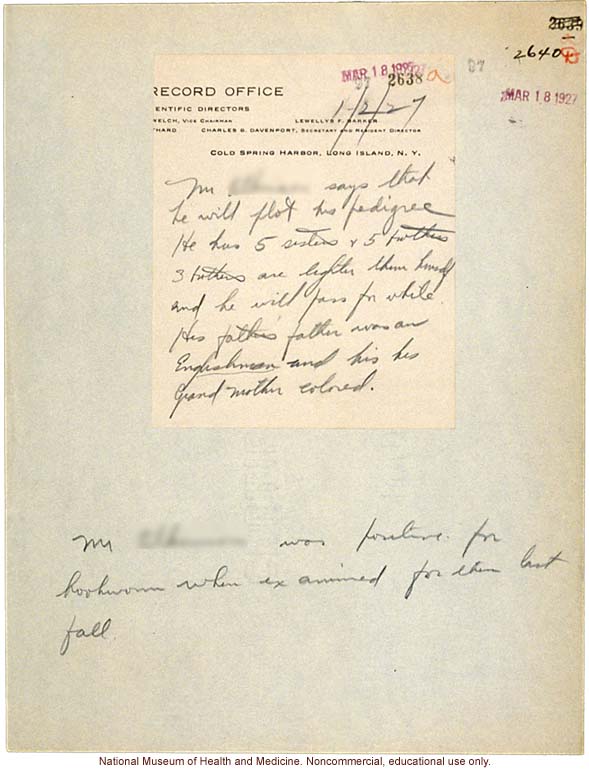 2640
MAR 18 1927
MAR 18 1927
2638 a
97
RECORD OFFICE
1/2/27
ENTIFIC DIRECTORS
WELCH, VICE CHAIRMAN LEWELLYS F. BARKER
HARD CHARLES B. DAVENPORT, SECRETARY AND RESIDENT DIRECTOR
COLD SPRING HARBOR, LONG ISLAND, N. Y.
Mr says that
he will plot his pedigree
He has 5 sisters & 5 brothers
3 brothers are lighter them himself
and he will pass for white.
His father's father was an
Englishman and his his
Grand-mother colored.
Mr was positive for
hookworm when examined for them last
fall.
National Museum of Health and Medicine. Noncommercial, educational use only.